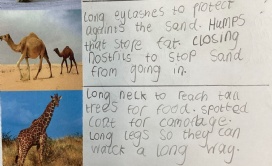 Long eylashes to protect
againts the sand. Humps
that store fat closing
nostrils to stop sand
from going in.
Long neck to reach tall
trees for food. spotted
cort for camorlage.
Long legs so they can
watch a long way.